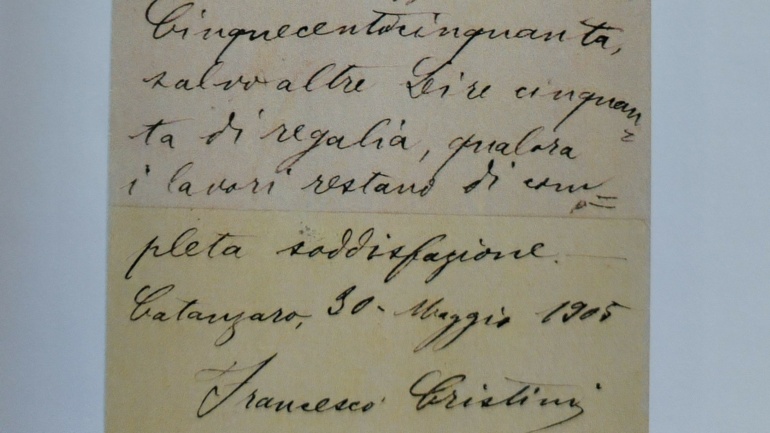 Cinquecentocinquanta,
salvo altre Lire cinquan=
ta di regalia, qualora
i lavori restano di com=
pleta soddisfazione.
Catanzaro, 30- Maggio 1905
Francesco Cristini